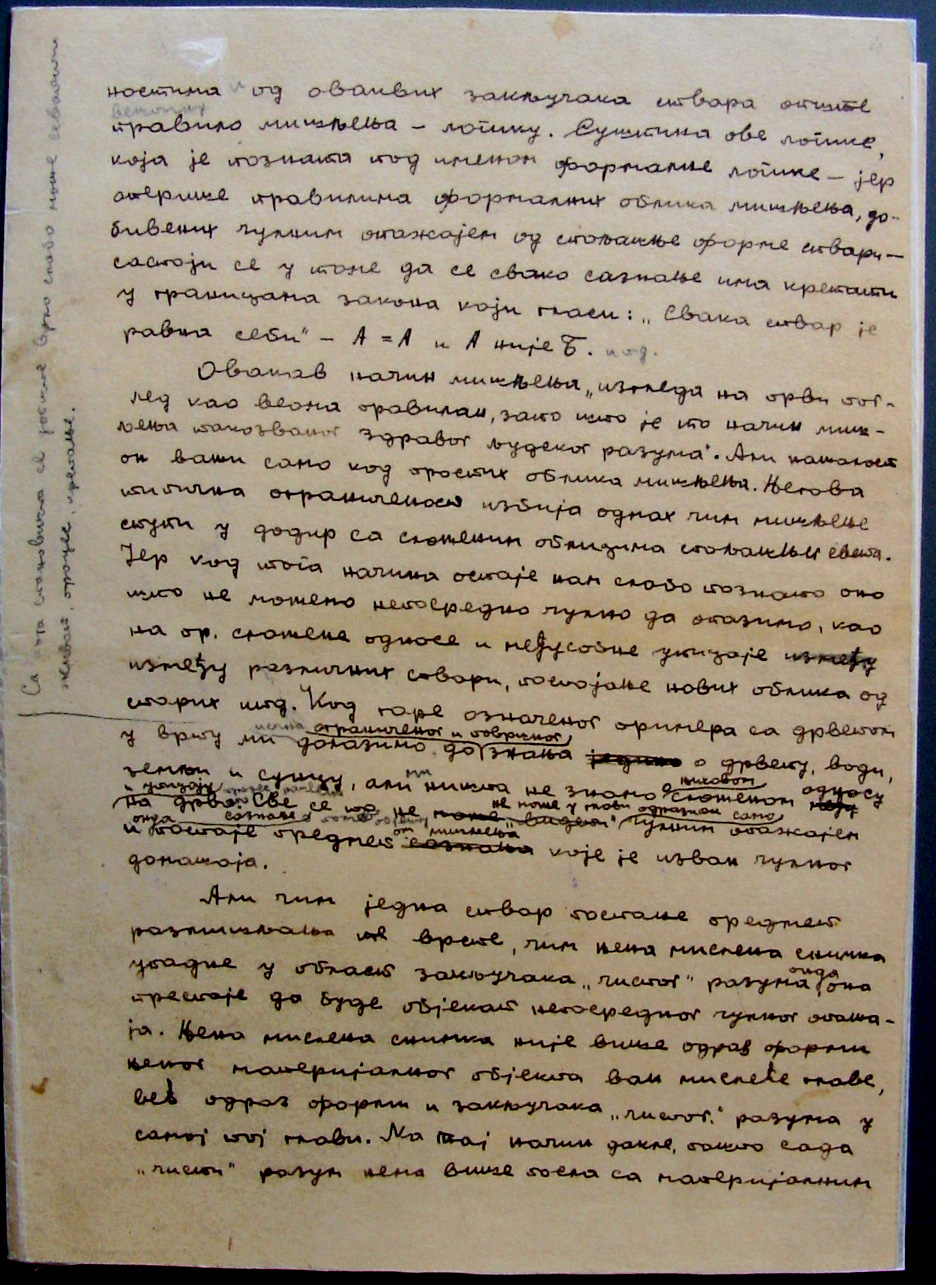 ностима од оваквих закључака ствара опште
правило мишљења – логику. Суштина ове логике,
која је позната под именом формалне логике – јер
оперише правилима формалних облика мишљења, до-
бивених чулним опажајем од спољашње форме ствари –
састоји се у томе да се свако сазнање има кретати
у границама закона који гласи: „Свака ствар је
равна себи“ – А = А и А није Б. итд.
Овакав начин мишљења „изгледа на први пог-
лед као веома правилан, зато што је то начин миш-
љења такозваног здравог људског разума“. Али нажалост
он важи само код простих облика мишљења. Његова
типична ограниченост избија одмах чим мишљење
ступи у додир са сложеним облицима спољашњег света.
Јер код тога начина остаје нам слабо познато оно
што не можемо непосредно чулно да опазимо, као
на пр. сложене односе и међусобне утицаје између
између различних ствари, постојање нових облика од
старих итд. Код горе означеног примера са дрветом
ограниченог и површног
у врту ми долазимо до знања једино о дрвету, води,
њиховом
земљи и сунцу, али ми ништа не знамо о сложеном односу
и утицају не може у глави одразити само
на дрво. Све се то не може „видети“ чулним опажајем
онда сазнање мишљења
и постаје предмет сазнања које је изван чулног
домашаја.
Али чим једна ствар постане предмет
размишљања те врсте, чим њена мислена снимка
упадне у област закључака „чистог“ разума, онда она
престаје да буде објекат непосредног чулног опажа-
ја. Њена мислена снимка није више одраз форми
њеног материјалног објекта ван мислеће главе,
већ одраз форми и закључака „чистог“ разума у
самој тој глави. На тај начин дакле, пошто сада
„чисти“ разум нема више посла са материјалним
Са тога становишта се појаве врло слабо може схватити
живот, процес, кретање.